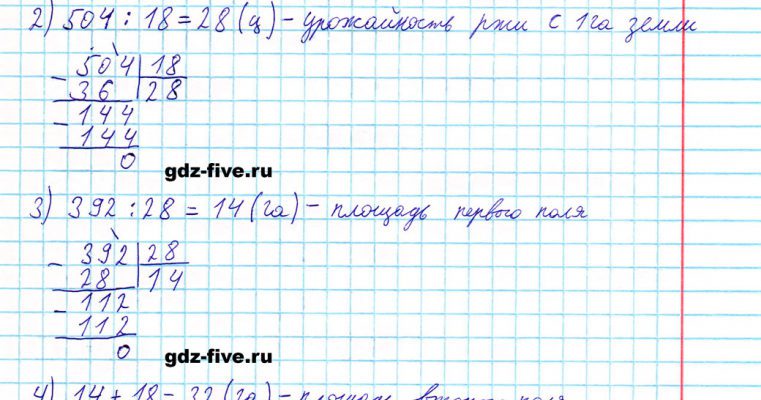 2) 504 : 18 = 28 (ц) - урожайность ржи с 1га земли
504 18
36 28
144
144
0
gdz-five.ru
3) 392 : 28 = 14 (га) - площадь первого поля
392 28
28 14
112
112
0
gdz-five.ru
4) 14 + 18 = 32 (га) - площадь второго поля